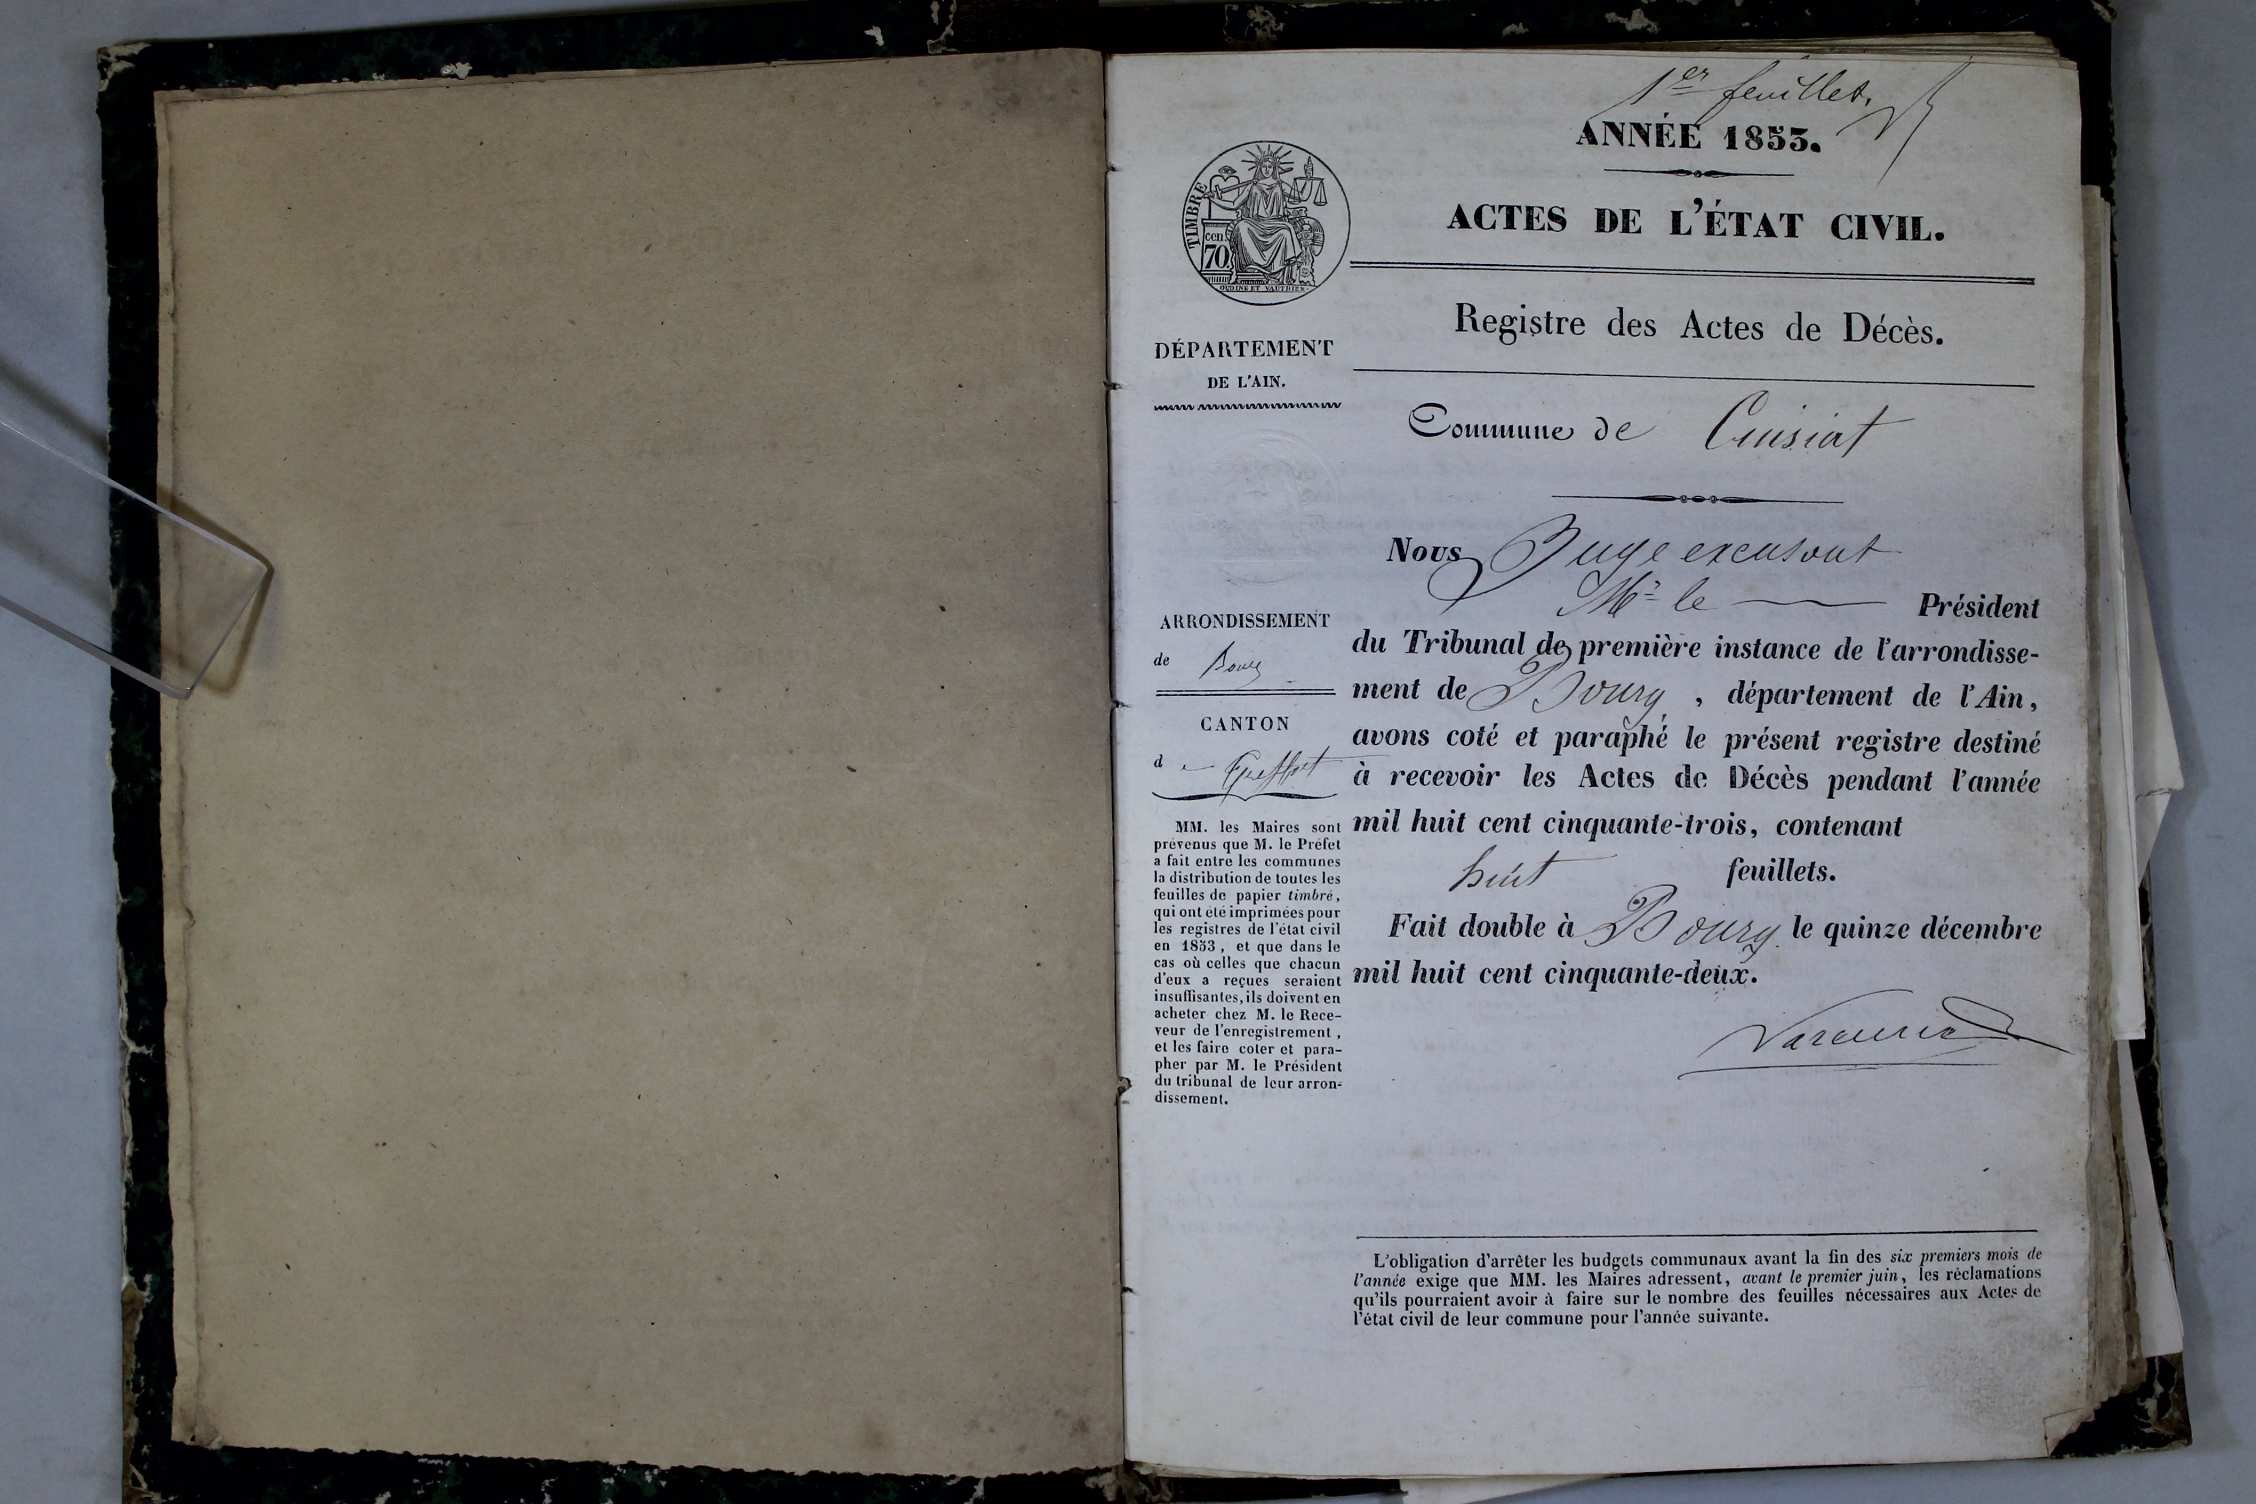 1er feuillet.
ANNÉE 1853.
ACTES DE L'ÉTAT CIVIL.
TIMBRE
cen.
70
OUDINE ET VAUTHIER
Registre des Actes de Décès.
DÉPARTEMENT
DE L'AIN.
Commune de Cuisiat
Nous Juge excusant
Mr le Président
du Tribunal de première instance de l'arrondisse-
ment de Bourg, département de l'Ain,
avons coté et paraphé le présent registre destiné
à recevoir les Actes de Décès pendant l'année
mil huit cent cinquante-trois, contenant
huit feuillets.
Fait double à Bourg le quinze décembre
mil huit cent cinquante-deux.
ARRONDISSEMENT
de Bourg
CANTON
de Treffort
MM. les Maires sont
prévenus que M. le Préfet
a fait entre les communes
la distribution de toutes les
feuilles de papier timbré,
qui ont été imprimées pour
les registres de l'état civil
en 1853, et que dans le
cas où celles que chacun
d'eux a reçues seraient
insuffisantes, ils doivent en
acheter chez M. le Rece-
veur de l'enregistrement,
et les faire coter et para-
pher par M. le Président
du tribunal de leur arron-
dissement.
L'obligation d'arrêter les budgets communaux avant la fin des six premiers mois de
l'année exige que MM. les Maires adressent, avant le premier juin, les réclamations
qu'ils pourraient avoir à faire sur le nombre des feuilles nécessaires aux Actes de
l'état civil de leur commune pour l'année suivante.